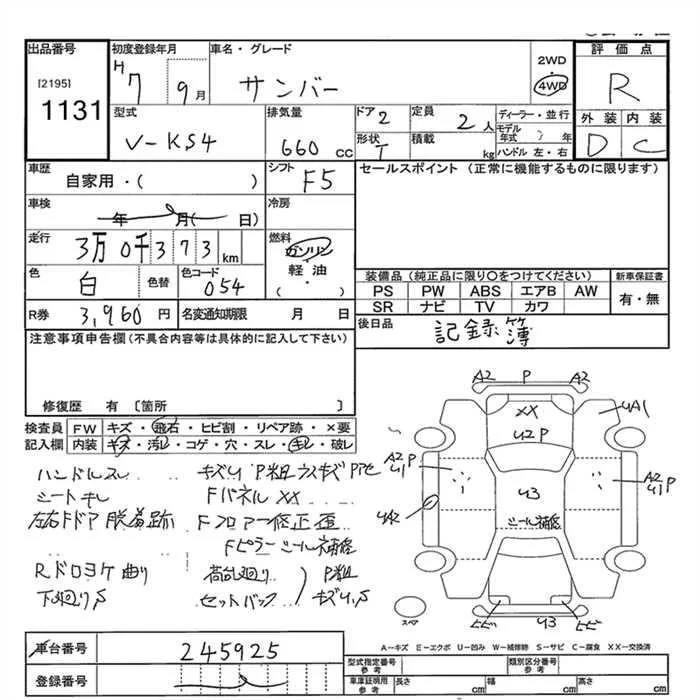 出品番号
[2195]
1131
初度登録年月
H7 9月
車名・グレード
サンバー
2WD
・
4WD
評価点
R
型式
V-KS4
排気量
660 CC
ドア 2
形状 T
定員
2人
積載
kg
ディーラー・並行
モデル年式 年
ハンドル 左・右
外装 内装
D C
車歴
自家用・( )
シフト
F5
セールスポイント (正常に機能するものに限ります)
車検
年 月( 日)
冷房
走行
3万0千373km
燃料
ガソリン
軽油
( ・ )
色
白
色替
色コード
054
装備品 (純正品に限り〇をつけてください)
新車保証書
PS PW ABS エアB AW
SR ナビ TV カワ
有・無
R券 3,960円
名変通知期限 月 日
後日品
記録簿
注意事項申告欄 (不具合内容等は具体的に記入して下さい)
修復歴 有 〔箇所 〕
検査員
記入欄
FW キズ・飛石・ヒビ割・リペア跡・×要
内装 キズ・汚レ・コゲ・穴・スレ・キレ・破レ
ハンドルスレ
シートキレ
左右Fドア脱着跡
Rドロヨケ曲り
下廻りS
キズU P粗 ウスキズ Pアセ
Fパネル XX
Fフロアー修正歪
Fピラーシール補修
荷乱廻り
セットバック
P粗
キズU,S
A2 P A2
XX
U2P
UA1
A2
U1P
A2
U1P
UA2
U3
シール補修
ヒビ U3 ヒビ
スペア
A-キズ E-エクボ U-凹み W-補修跡 S-サビ C-腐食 XX-交換済
車台番号
245925
登録番号
型式指定番号
参考
類別区分番号
参考
車庫証明用
参考
長さ cm
幅 cm
高さ cm